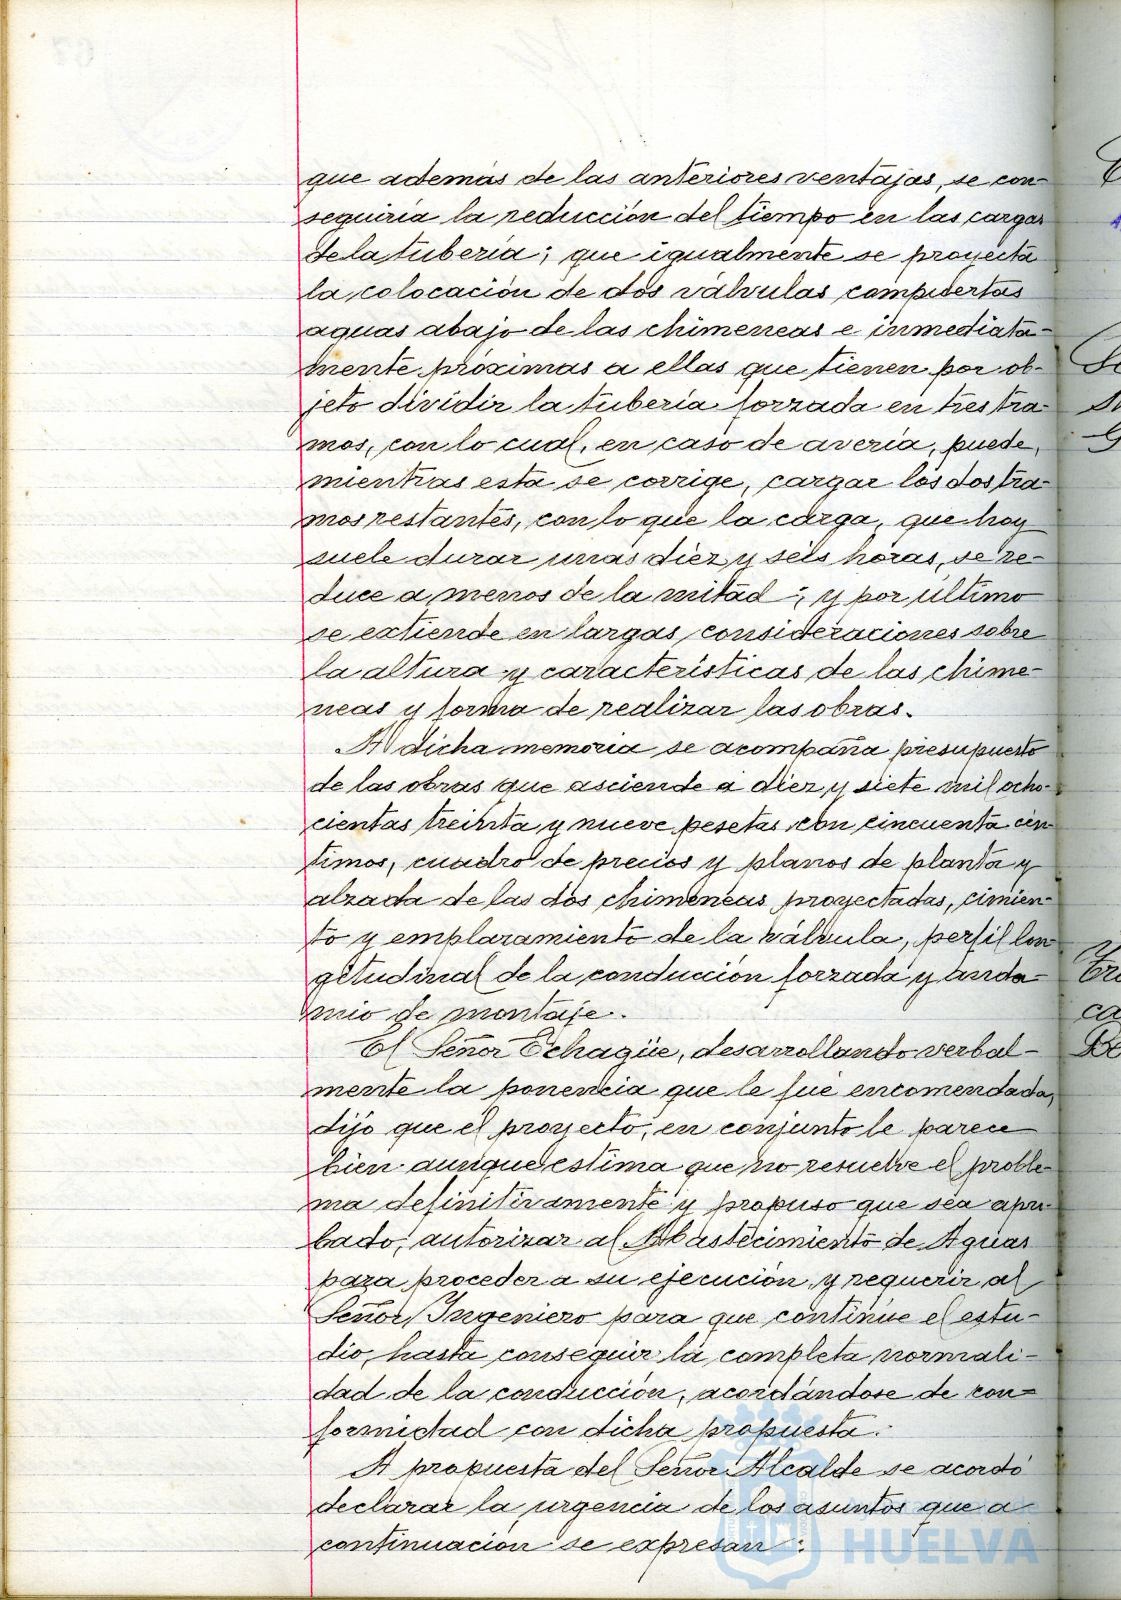 que además de las anteriores ventajas, se con-
seguiría la reducción del tiempo en las cargas
de la tubería; que igualmente se proyecta
la colocación de dos válvulas compuertas
aguas abajo de las chimeneas e inmediata-
mente próximas a ellas que tienen por ob-
jeto dividir la tubería forzada en tres tra-
mos, con lo cual, en caso de avería, puede,
mientras esta se corrige, cargar los dos tra-
mos restantes, con lo que la carga, que hoy
suele durar unas diez y seis horas, se re-
duce a menos de la mitad; y por último
se extiende en largas consideraciones sobre
la altura y características de las chime-
neas y forma de realizar las obras.
A dicha memoria se acompaña presupuesto
de las obras que asciende a diez y siete mil ocho-
cientas treinta y nueve pesetas con cincuenta cén-
timos, cuadro de precios y planos de planta y
alzada de las dos chimeneas proyectadas, cimien-
to y emplazamiento de la válvula, perfil lon
gitudinal de la conducción forzada y anda-
mio de montaje.
El Señor Echagüe, desarrollando verbal-
mente la ponencia que le fué encomendada,
dijo que el proyecto, en conjunto le parece
bien aunque estima que no resuelve el proble-
ma definitivamente y propuso que sea apro-
bado, autorizar al Abastecimiento de Aguas
para proceder a su ejecución y requerir al
Señor Ingeniero para que continúe el estu-
dio, hasta conseguir la completa normali-
dad de la conducción, acordándose de con-
formidad con dicha propuesta.
A propuesta del Señor Alcalde se acordó
declarar la urgencia de los asuntos que a
continuación se expresan:
HUELVA